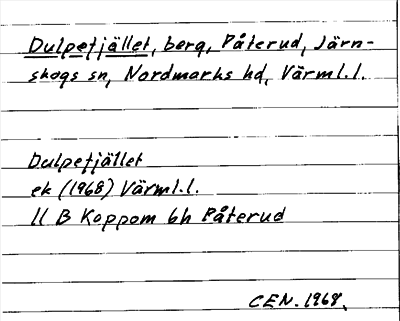 Dulpetjället, berg, Påterud, Järn-
skogs sn, Nordmarks hd, Värml.l.
Dulpetjället
ek (1968) Värml.l.
11 B Koppom 6h Påterud
CEN. 1968.